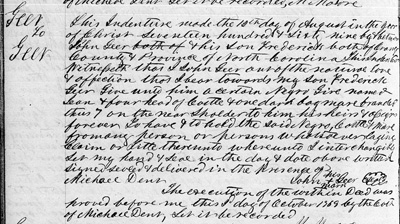 Geer
to
Geer
This Indenture made the 10th day of August in the year
of Christ Seventeen hundred & Sixty nine by & between
John Geer both of & this Son Frederick both of Orange
County & Province of North Carolina This Indenture
Witnesseth that I John Geer out of the natural love
& affection that I bear towards my Son Frederick
Geer Give unto him a certain Negro Give named
Jean & four head of Cattle & one dark bay mare branded
thus 7 on the near Sholder to him his heirs & assigns
forever To have & to hold the said Negro, Cattle & mare
from any person or persons Whatsoever laying
Claim or title thereunto whereunto I interchangibly
Set my hand & Seal in the day & date above written
Signed Sealed & delivered in the presence of
Michael Dent John his mark Geer
The execution of the within Deed was
proved before me this 3 day of October 1769 by the oath
of Michael Dent, Let it be recorded